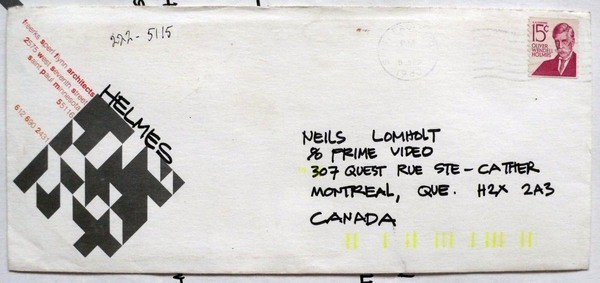 freerks sperl flynn architects
2575 west seventh street
saint paul minnesota
55116
612 690 2431
HELMES
222-5115
15¢
OLIVER
WENDELL
HOLMES
NEILS LOMHOLT
% PRIME VIDEO
307 QUEST RUE STE-CATHER
MONTREAL, QUE. H2X 2A3
CANADA